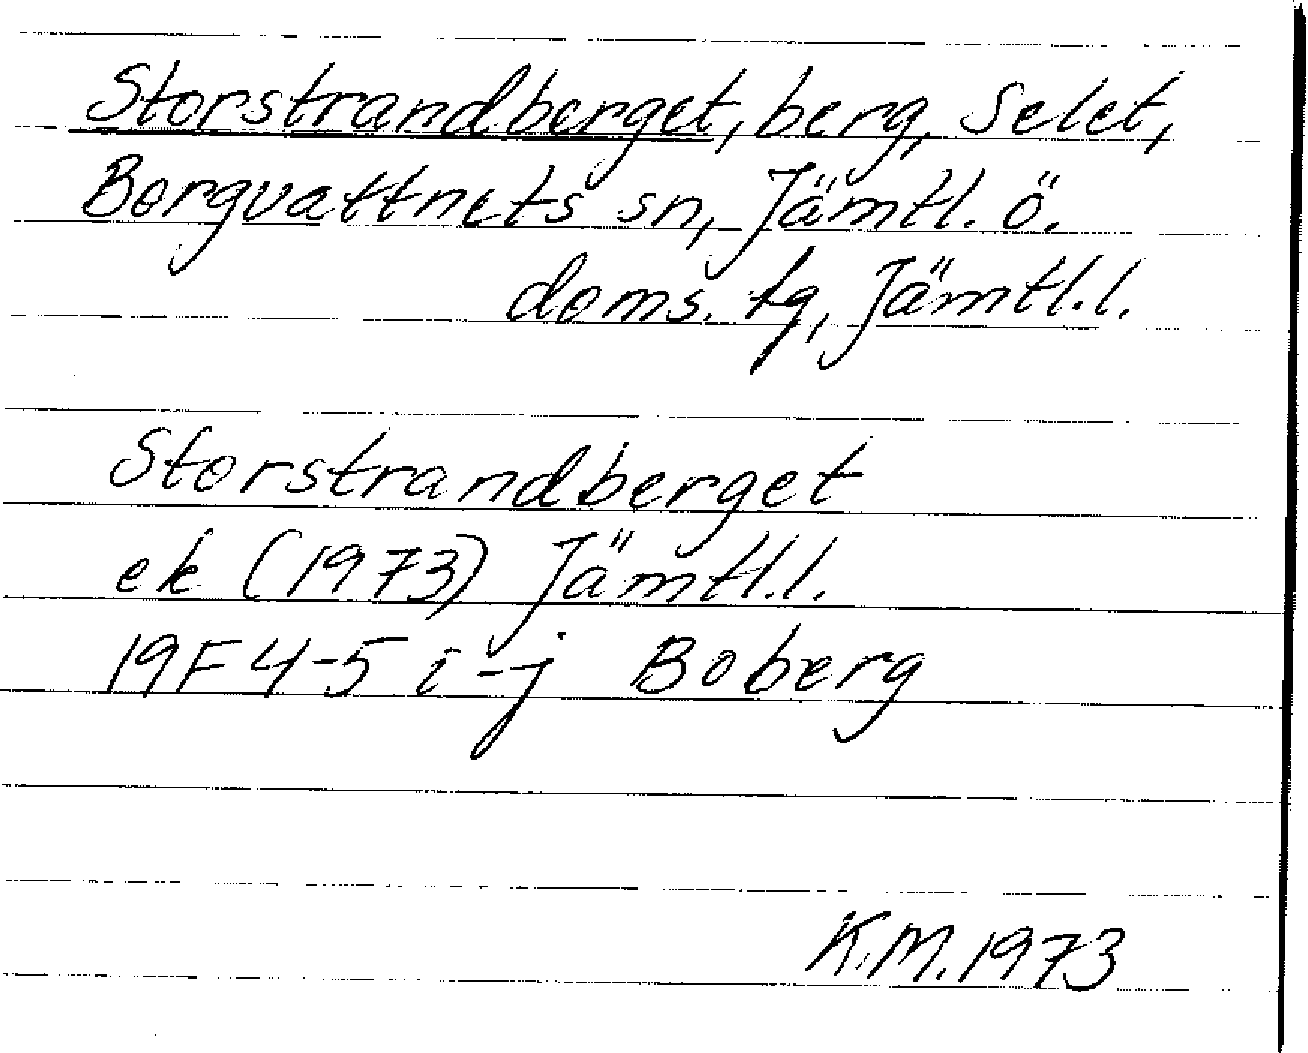 Storstrandberget, berg, Selet,
Borgvattnets sn, Jämtl. ö.
doms. tg, Jämtl. l.
Storstrandberget
ek (1973) Jämtl. l.
19F 4-5 i-j Boberg
K.M. 1973